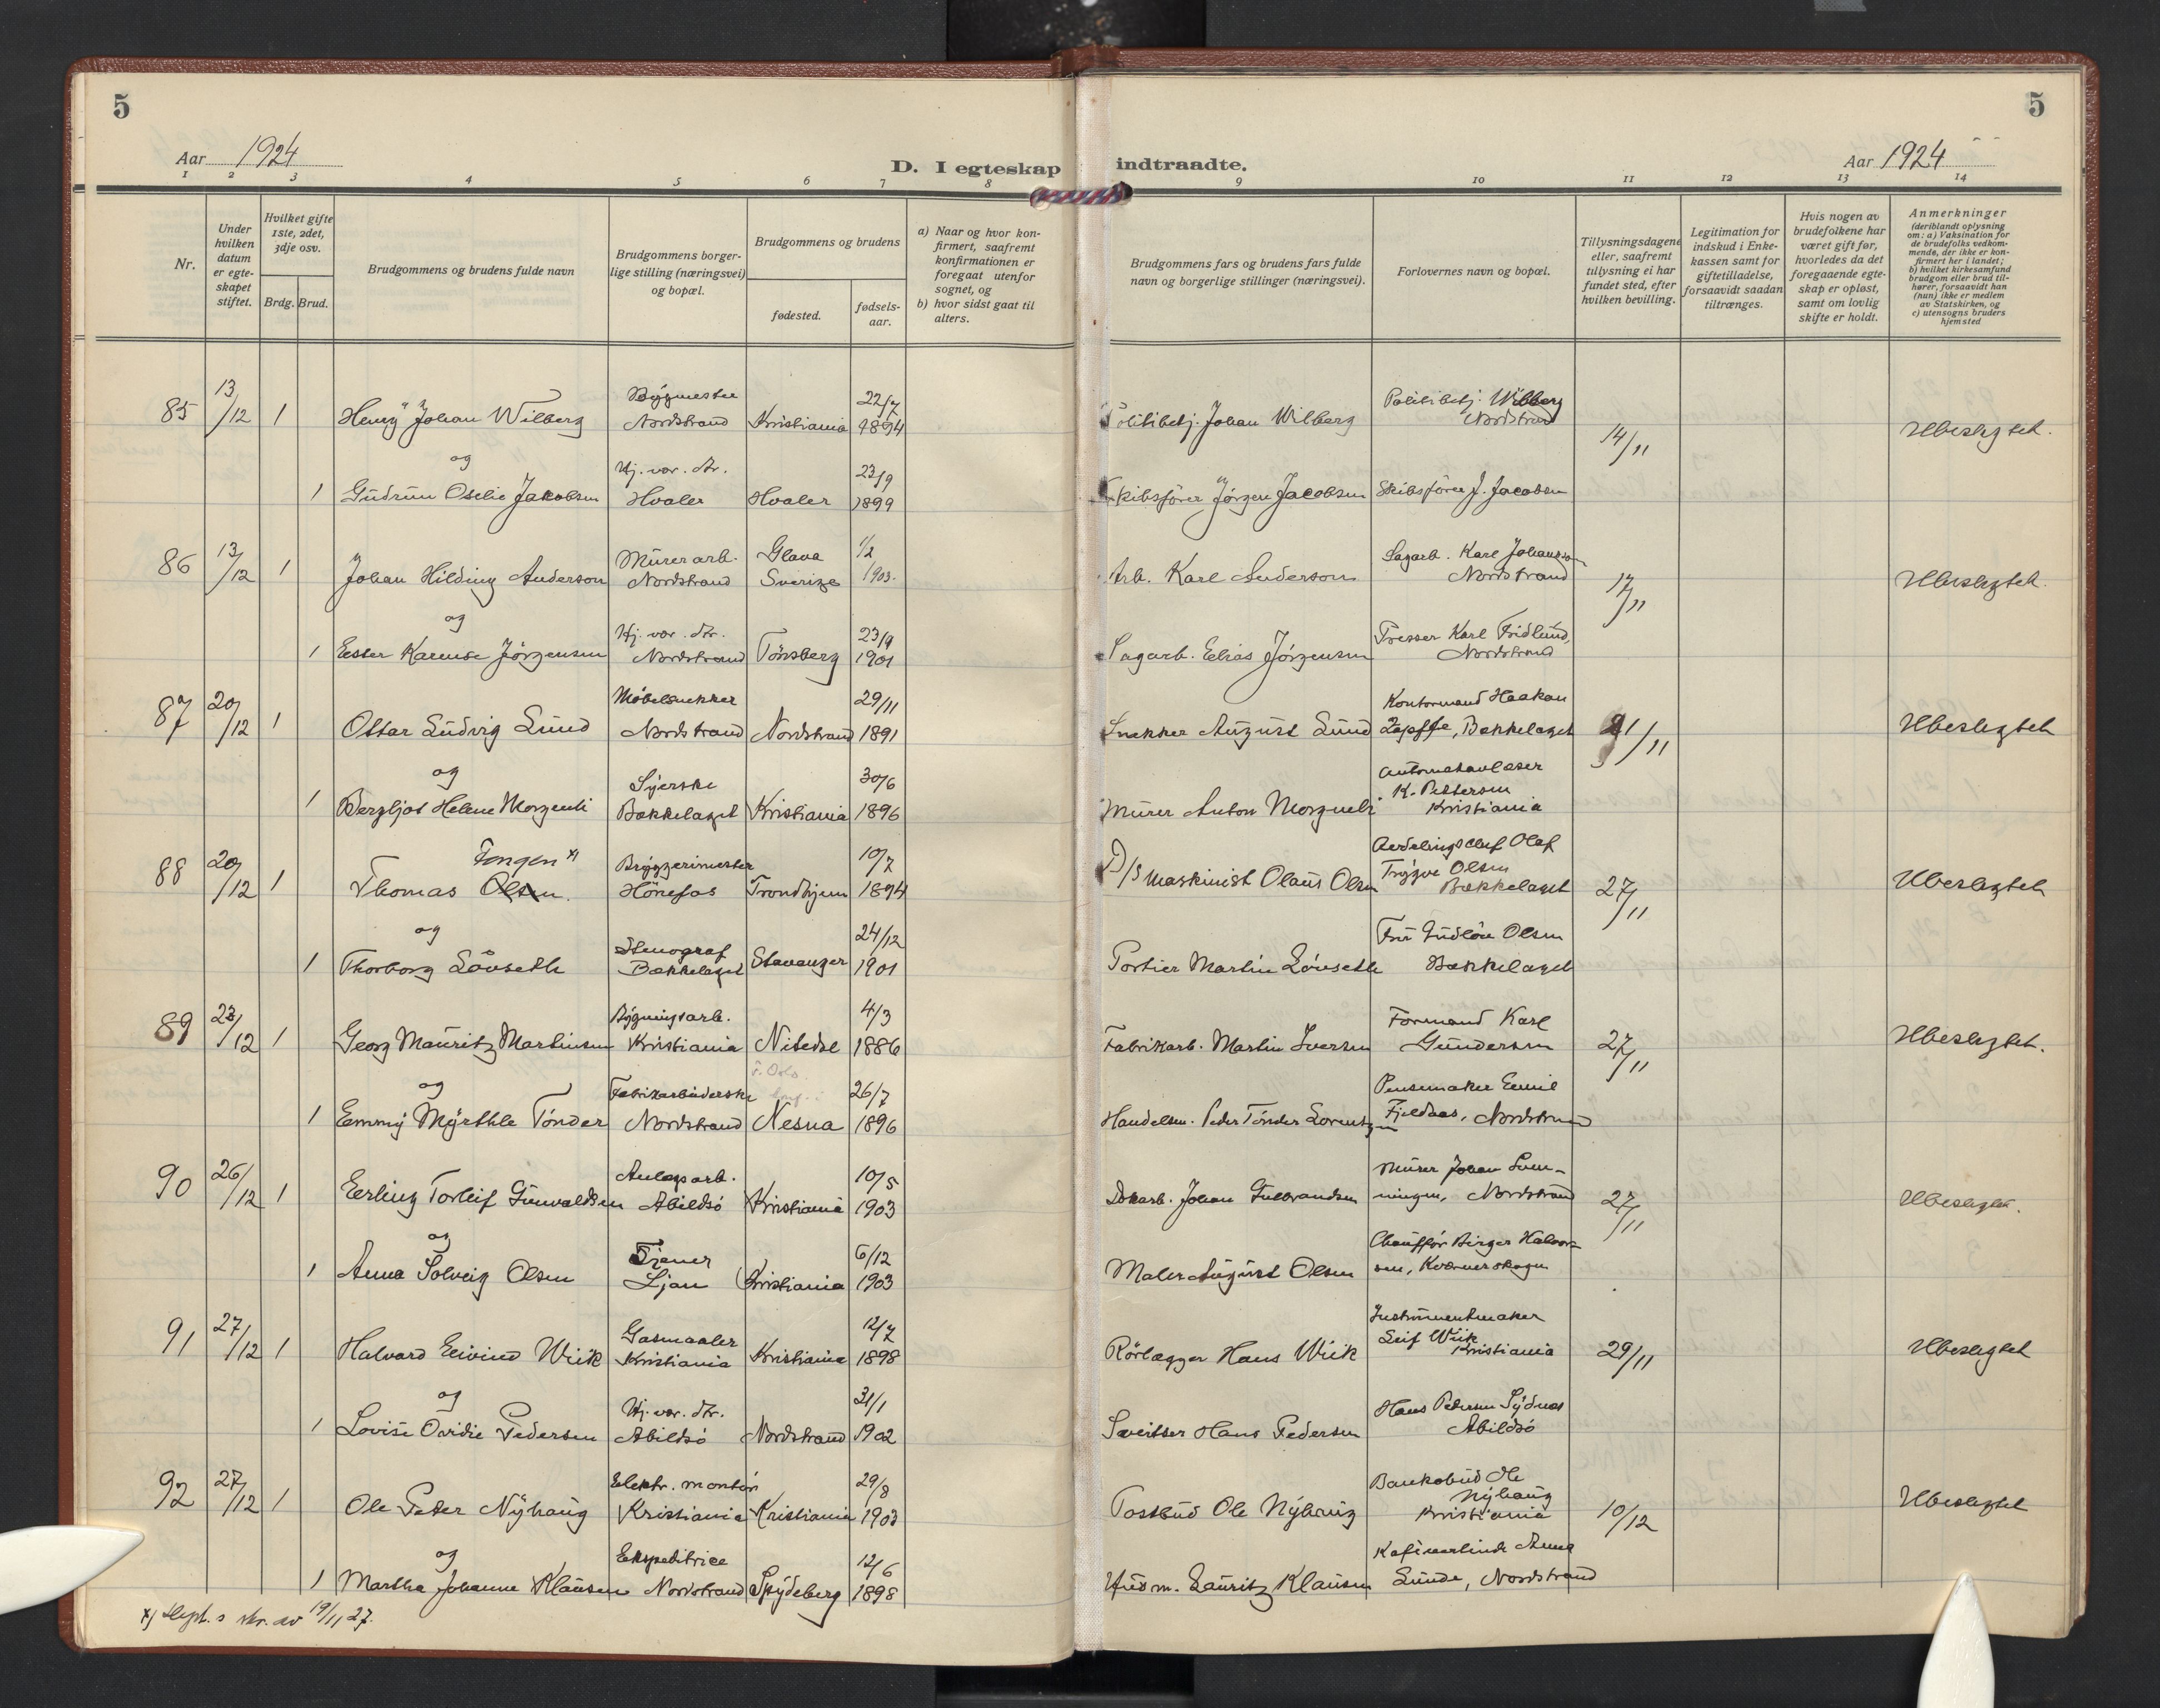 5
5
Aar 1924
D. I egteskap indtraadte.
Aar 1924
1 2 3 4 5 6 7 8 9 10 11 12 13 14
Nr.
Under hvilken datum er egteskapet stiftet.
Hvilket gifte 1ste, 2det, 3dje osv.
Brdg. Brud.
Brudgommens og brudens fulde navn
Brudgommens borgerlige stilling (næringsvei) og bopæl.
Brudgommens og brudens
fødested.
fødselsaar.
a) Naar og hvor konfirmert, saafremt konfirmationen er foregaat utenfor sognet, og
b) hvor sidst gaat til alters.
Brudgommens fars og brudens fars fulde navn og borgerlige stillinger (næringsvei).
Forlovernes navn og bopæl.
Tillysningsdagene eller, saafremt tillysning ei har fundet sted, efter hvilken bevilling.
Legitimation for indskud i Enkekassen samt for giftetilladelse, forsaavidt saadan tiltrænges.
Hvis nogen av brudefolkene har været gift før, hvorledes da det foregaaende egteskap er opløst, samt om lovlig skifte er holdt.
Anmerkninger
(deriblandt oplysning om: a) Vaksination for de brudefolks vedkommende, der ikke er konfirmert her i landet;
b) hvilket kirkesamfund brudgom eller brud tilhører, forsaavidt han (hun) ikke er medlem av Statskirken, og
c) utensogns bruders hjemsted
85 13/12 1 Henry Johan Wilberg Bygmester Nordstrand Kristiania 22/7 1894 Politibetj. Johan Wilberg Politibetj. Wilberg Nordstrand 14/11 Ubeslegtet.
og
1 Gudrun Oselie Jakobsen Hj. vær. dtr. Hvaler Hvaler 23/9 1899 Skibsfører Jørgen Jacobsen Skibsfører J. Jacobsen
86 13/12 1 Johan Hilding Anderson Murerarb. Nordstrand Glava Sverige 1/2 1903. Arb. Karl Anderson Sagarb. Karl Johansson Nordstrand 17/11 Ubeslegtet.
og
1 Ester Karense Jörgensen Hj. vær. dtr. Nordstrand Tönsberg 23/9 1901 Sagarb. Elias Jörgensen Presser Karl Fridlund, Nordstrand
87 20/12 1 Ottar Ludvig Lund Møbelsnekker Nordstrand Nordstrand 29/11 1891 Snekker August Lund Kontormand Haakon Zapffe, Bækkelaget 21/11 Ubeslegtet
og
1 Bergljot Helene Morgenli Syerske Bækkelaget Kristiania 30/6 1896 Murer Anton Morgenli Automatavlæser K. Pettersen Kristiania
88 20/12 1 Thomas Olsen. Fongen x) Bryggerimester Hönefos Trondhjem 10/7 1894 D/S Maskinist Olaus Olsen Avdelingschef Olaf Trygve Olsen Bækkelaget 27/11 Ubeslegtet
og
1 Thorborg Lövseth Stenograf Bækkelaget Stavanger 24/12 1901 Portier Martin Lövseth Fru Gudlöu Olsen Bækkelaget
89 23/12 1 Georg Mauritz Martinsen Bygningsarb. Kristiania Nitedal 4/3 1886 Fabrikarb. Martin Iversen Formand Karl Gundersen 27/11 Ubeslegtet.
og
1 Emmy Myrthle Tönder Fabrikarbeiderske Nordstrand Nesna 26/7 1896 Handelsm. Peder Tönder Lorentzen Pensemaker Emil Fjeldaas, Nordstrand
90 26/12 1 Erling Torleif Gunvaldsen Anlegsarb. Abildsö Kristiania 10/5 1903 Dokarb. Johan Gulbrandsen Murer Johan Svenningsen, Nordstrand 27/11 Ubeslegtet.
og
1 Anna Solveig Olsen Tjener Ljan Kristiania 6/12 1903 Maler August Olsen Chauffør Birger Halvorsen, Kværnerskogen
91 27/12 1 Halvard Eivind Wiik Gasmaaler Kristiania Kristiania 12/7 1898 Rörlægger Hans Wiik Instrumentmaker Leif Wiik Kristiania 29/11 Ubeslegtet
og
1 Lovise Ovidie Pedersen Hj. vær. dtr. Abildsö Nordstrand 31/1 1902 Sveitser Hans Pedersen Hans Pedersen Sydnes Abildsö
92 27/12 1 Ole Peter Nyhaug Elektr. montør Kristiania Kristiania 29/8 1903 Postbud Ole Nyhaug Bankobud Ole Nyhaug Kristiania 10/12 Ubeslegtet
og
1 Martha Johanne Klausen Ekspeditrice Nordstrand Spydeberg 12/6 1898 Husm. Lauritz Klausen Kafévertinde Anna Lunde, Nordstrand
x) skr. av 19/11 27.